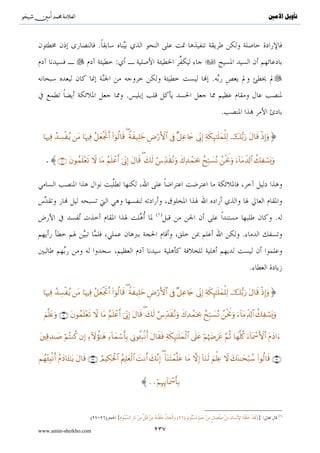 تأويل الأمين
العلامة محمد أمين شيخو
فالإرادة حاصلة ولكن طريقة تنفيذها تمت على النحو الذي بيَّناه سابقاً. فالنصارى إذن مخطئون
بادعائهم أن السيد المسيح جاء ليكفِّر الخطيئة الأصلية ــ أي: خطيئة آدم ــ فسيدنا آدم
ﷺ لم يخطئ ولم يعصِ ربَّه. إنها ليست خطيئة ولكن خروجه من الجنَّة إنما كان ليعدِه سبحانه
لمنصب عالٍ ومقام عظيم مما جعل الحسد يأكل قلب إبليس. ومما جعل الملائكة أيضاً تطمع في
بادئ الأمر بهذا المنصب.
﴿ وَإِذْ قَالَ رَبُّكَ لِلْمَلَٰٓئِكَةِ إِنِّى جَاعِلٌ فِى ٱلْأَرْضِ خَلِيفَةً ۖ قَالُوٓا۟ أَتَجْعَلُ فِيهَا مَن يُفْسِدُ فِيهَا
وَيَسْفِكُ ٱلدِّمَآءَ وَنَحْنُ نُسَبِّحُ بِحَمْدِكَ وَنُقَدِّسُ لَكَ ۖ قَالَ إِنِّىٓ أَعْلَمُ مَا لَا تَعْلَمُونَ ﴾ .
وهذا دليل آخر، فالملائكة ما اعترضت اعتراضاً على الله، لكنها تطلَّبت نوال هذا المنصب السامي
والمقام العالي لها والذي أراده الله لهذا المخلوق، وأرادته لنفسها وهي التي تسبحه ليل نهار وتقدِّس
له. وكان طلبها مستنداً على أن الجن من قبل(١) لما أُهِّلت لهذا المقام أخذت تُفسد في الأرض
وتسفك الدماء. ولكن الله أعلم بمن خلق، وأقام الحجة ببرهان عملي، فلمَّا تبيَّن لهم خطأ رأيهم
وعلموا أن ليست لديهم أهلية للخلافة كأهلية سيدنا آدم العظيم، سجدوا له ومن ربِّهم طالبين
زيادة العطاء.
﴿ وَإِذْ قَالَ رَبُّكَ لِلْمَلَٰٓئِكَةِ إِنِّى جَاعِلٌ فِى ٱلْأَرْضِ خَلِيفَةً ۖ قَالُوٓا۟ أَتَجْعَلُ فِيهَا مَن يُفْسِدُ فِيهَا
وَيَسْفِكُ ٱلدِّمَآءَ وَنَحْنُ نُسَبِّحُ بِحَمْدِكَ وَنُقَدِّسُ لَكَ ۖ قَالَ إِنِّىٓ أَعْلَمُ مَا لَا تَعْلَمُونَ وَعَلَّمَ
ءَادَمَ ٱلْأَسْمَآءَ كُلَّهَا ثُمَّ عَرَضَهُمْ عَلَى ٱلْمَلَٰٓئِكَةِ فَقَالَ أَنۢبِـُٔونِى بِأَسْمَآءِ هَٰٓؤُلَآءِ إِن كُنتُمْ صَٰدِقِينَ
قَالُوا۟ سُبْحَٰنَكَ لَا عِلْمَ لَنَآ إِلَّا مَا عَلَّمْتَنَآ ۖ إِنَّكَ أَنتَ ٱلْعَلِيمُ ٱلْحَكِيمُ قَالَ يَٰٓـَٔادَمُ أَنۢبِئْهُم
بِأَسْمَآئِهِمْ ... ﴾
(١) قال تعالى: { وَلَقَدْ خَلَقْنَا الإِنْسَانَ مِنْ صَلْصَالٍ مِنْ حَمَإٍ مَسْنُونٍ (٢٦) وَالْجَانَّ خَلَقْنَاهُ مِنْ قَبْلُ مِنْ نَارِ السَّمُومِ } الحجر (٢٦-٢٧).
٢٣٧
www.amin-sheikho.com